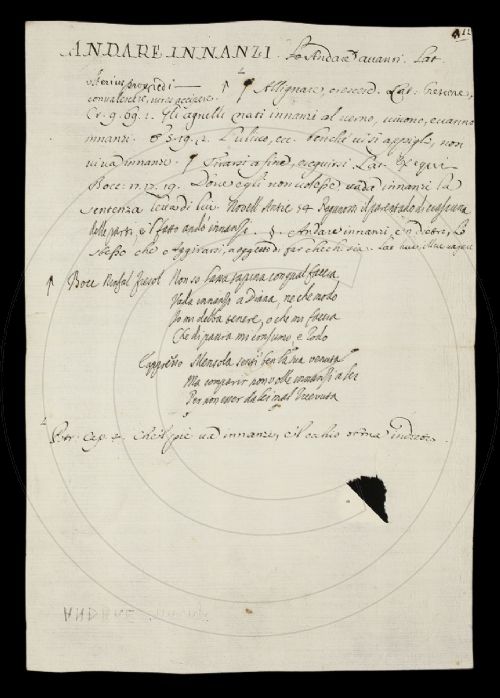 ANDARE INNANZI. Lo Andare avanti. Lat.
ulterius progredi
convalescere, vires accipere.
¶ Allignare, crescere. Lat. crescere,
Cr. 9. 69. 2. Gli agnelli nati innanzi al verno, vivono, e vanno
innanzi. E 5. 19. 2. L'ulivo, ec. benchè vi si appigli, non
vi va innanzi. ¶ Tirarsi a fine, eseguirsi. Lat. Exequi
Bocc. n. 17. 19. Dove egli non volesse, vada innanzi la
sentenza levardi lui. Novell. Antic. 54. Ragunossi il parentado di ciascuna
delle parti, e 'l fatto andò innanzi. §. Andare innanzi, e 'n dietro, lo
stesso che Aggirarsi, a far chechè sia. Lat.
Bocc. Ninfal. Fiesol. Non so s'una con qual faccia
Vada innanzi a Diana, nè che modo
Io mi debba tenere, o che mi faccia
Che di paura mi consumo, e rodo
Cappresso Mensola sentì ben la sua venuta
Ma comparir non volle innanzi a lei
Per non esser da lei mal ricevuta
Petr. cap. 4. Che 'l piè va innanzi, e l'occhio torna indietro.